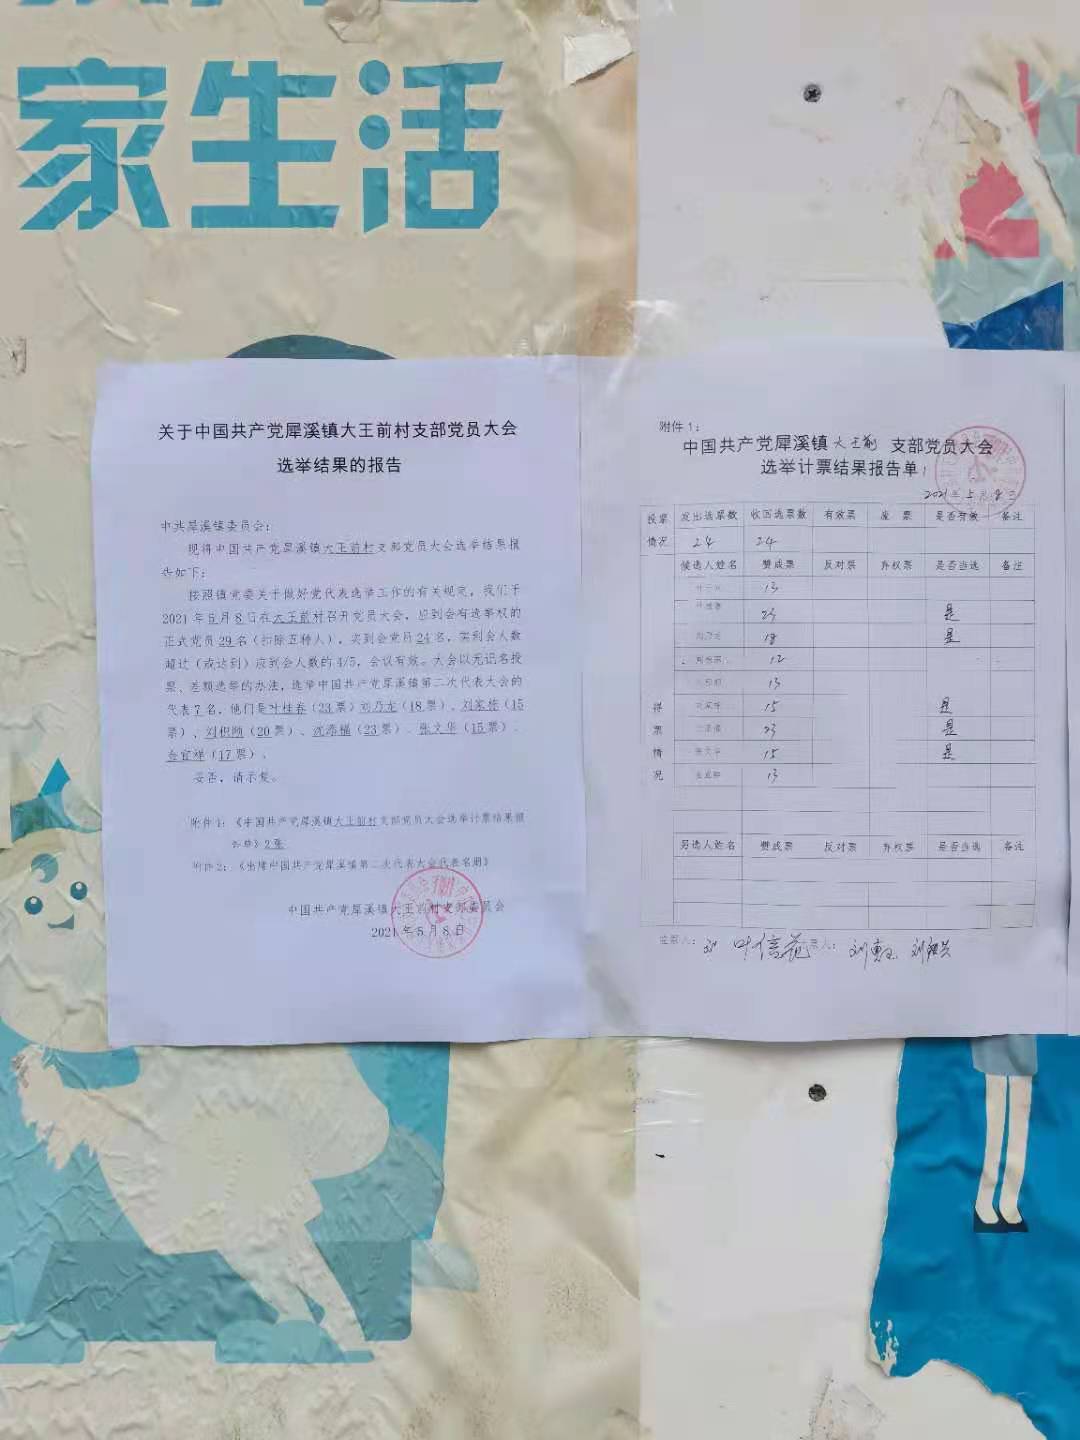 家生活
关于中国共产党犀溪镇大王前村支部党员大会
选举结果的报告
中共犀溪镇委员会：
现将中国共产党犀溪镇大王前村支部党员大会选举结果报
告如下：
按照镇党委关于做好党代表选举工作的有关规定，我们于
2021年5月8日在大王前村召开党员大会，应到会有选举权的
正式党员29名（扣除五种人），实到会党员24名，实到会人数
超过（或达到）应到会人数的4/5，会议有效。大会以无记名投
票、差额选举的办法，选举中国共产党犀溪镇第二次代表大会的
代表7名，他们是叶桂春（23票）刘乃龙（18票）、刘家栋（15
票）、刘积顺（20票）、沈添福（23票）、张文华（15票）、
（17票）。
妥否，请示复。
附件1：《中国共产党犀溪镇大王前村支部党员大会选举计票结果报
告单》2张
附件2：《出席中国共产党犀溪镇第二次代表大会代表名册》
中国共产党犀溪镇大王前村支部委员会
2021年5月8日
附件1：
中国共产党犀溪镇 大王前 支部党员大会
选举计票结果报告单1
2021年5月8日
投票 发出选票数 收回选票数 有效票 废 票 是否有效 备注
情况 24 24
候选人姓名 赞成票 反对票 弃权票 是否当选 备注
13
23 是
18 是
12
13
得 15 是
票 23 是
情 15 是
况 13
另选人姓名 赞成票 反对票 弃权票 是否当选 备注
监票人： 叶信花 票人： 刘惠玉